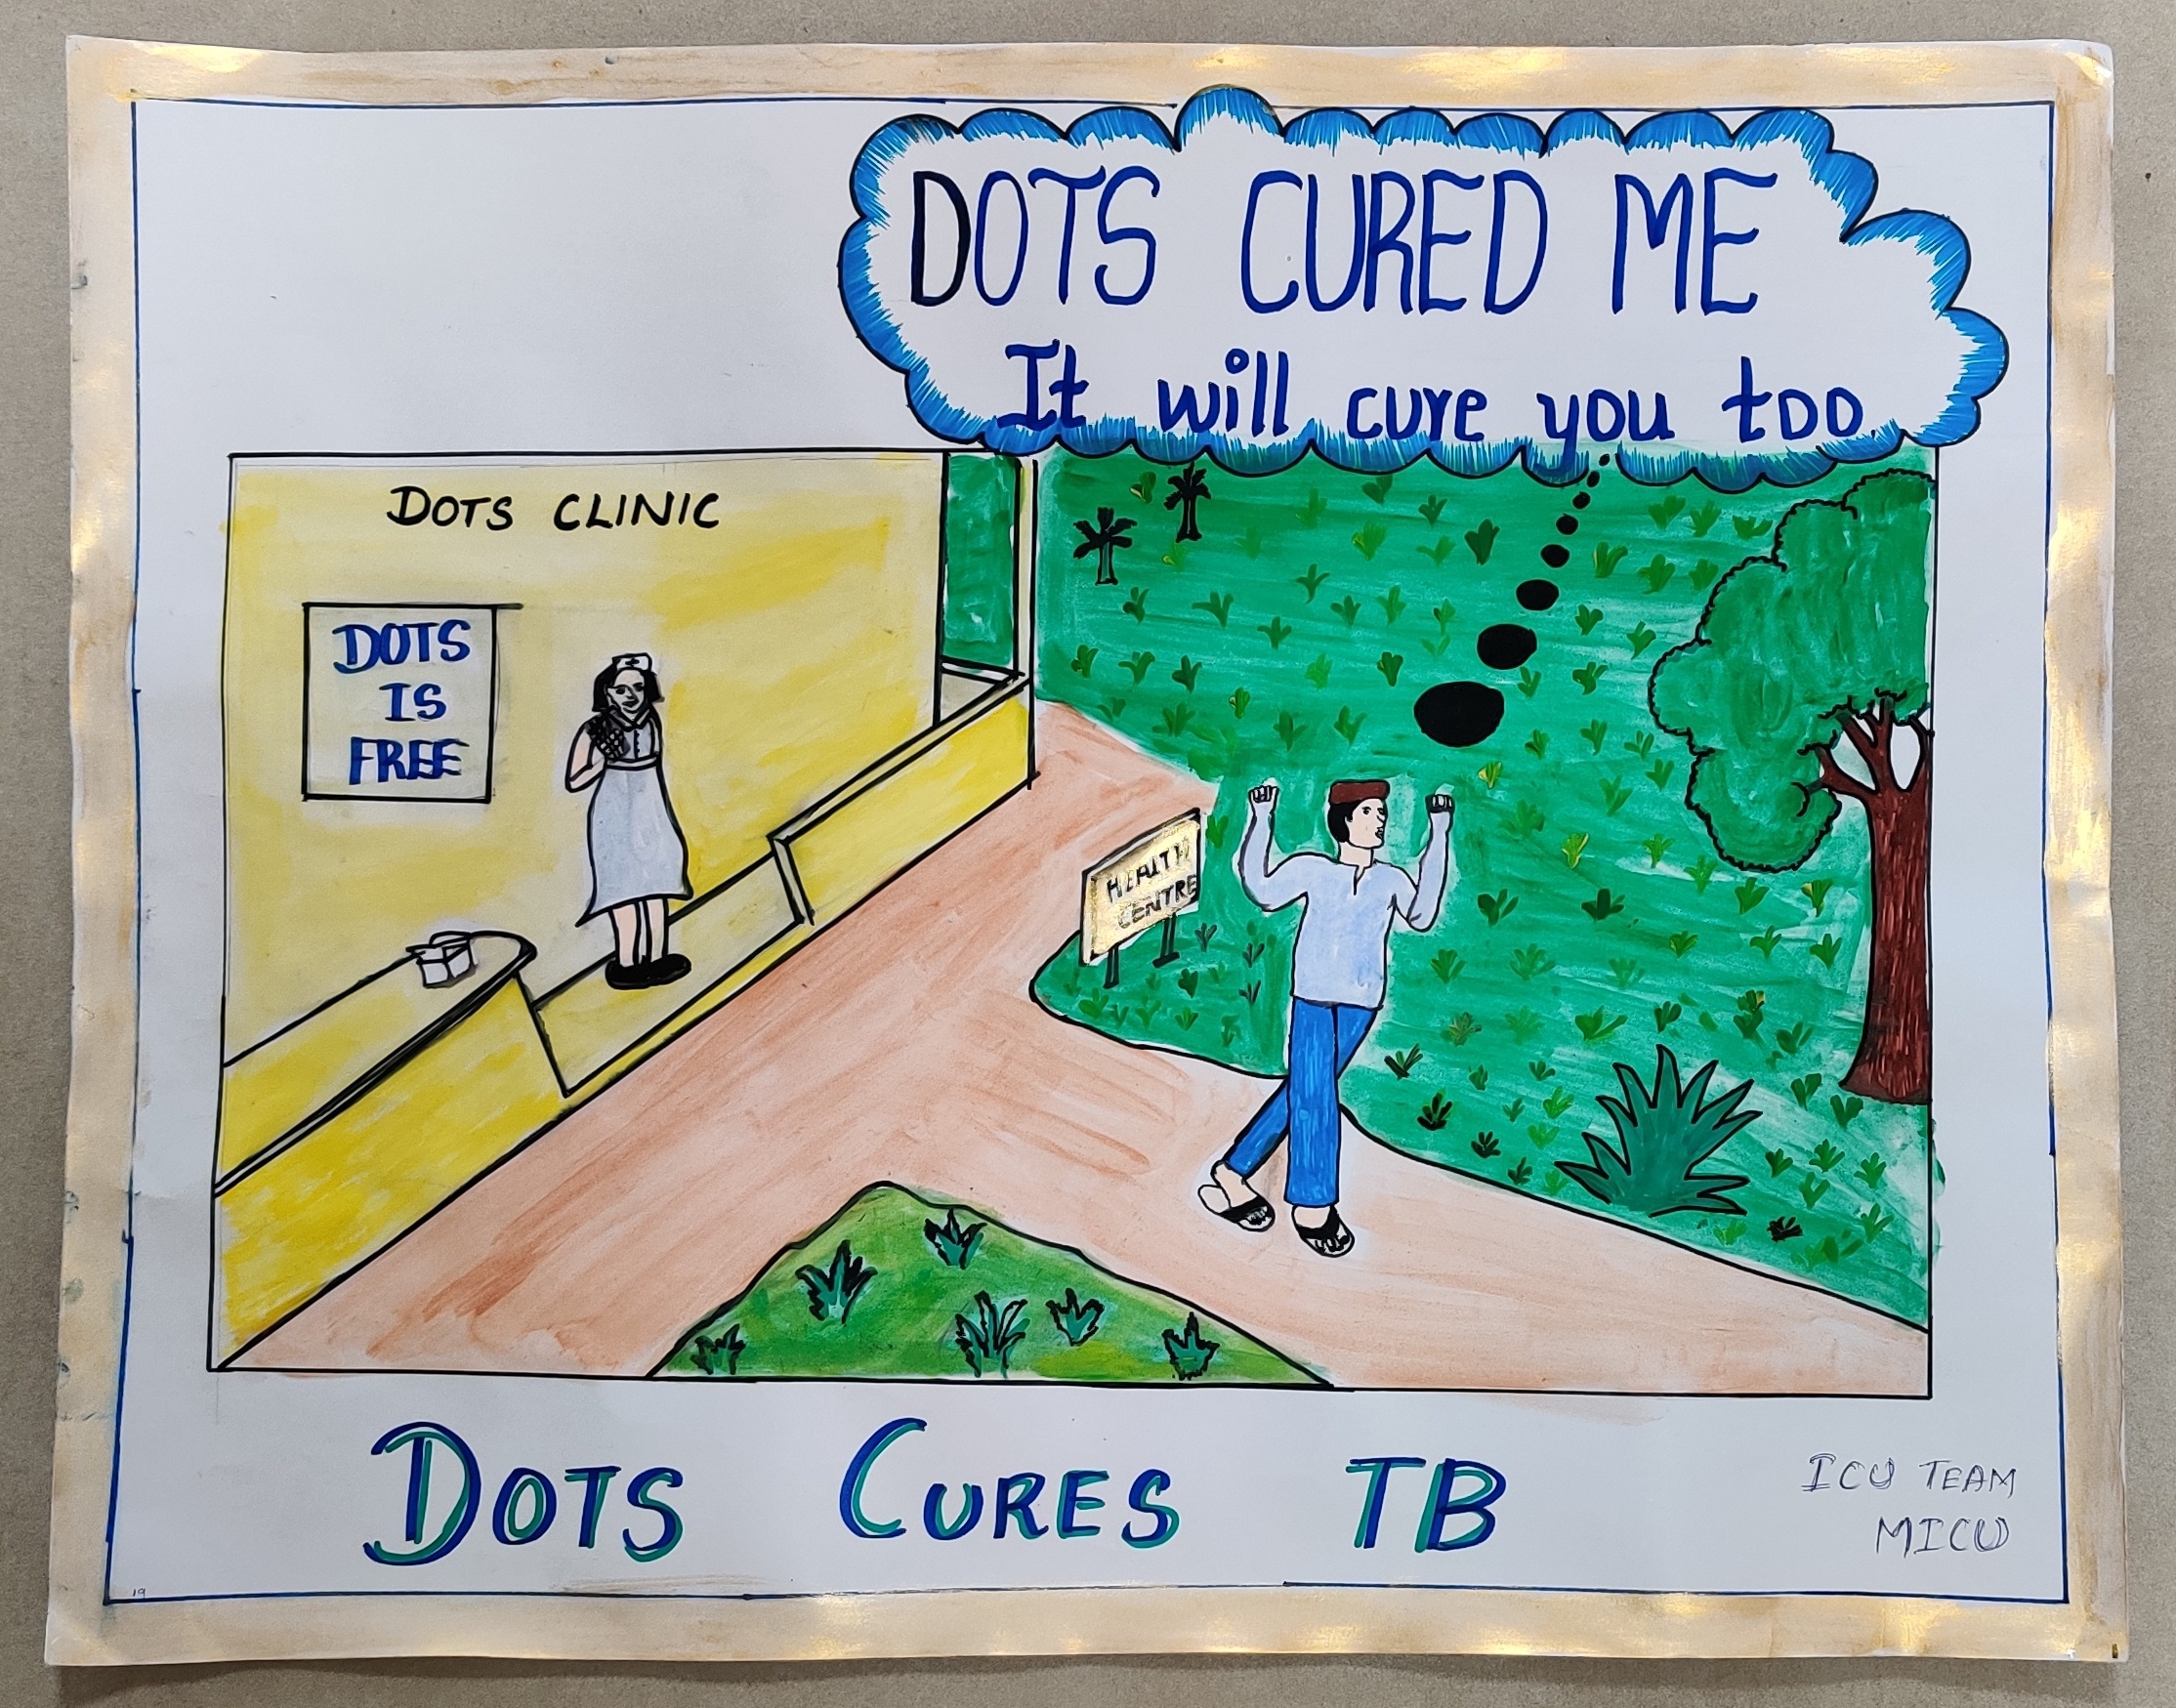 DOTS CURED ME
It will cure you too.
DOTS CLINIC
DOTS
IS
FREE
HEALTH
CENTRE
DOTS CURES TB
ICU TEAM
MICU
19